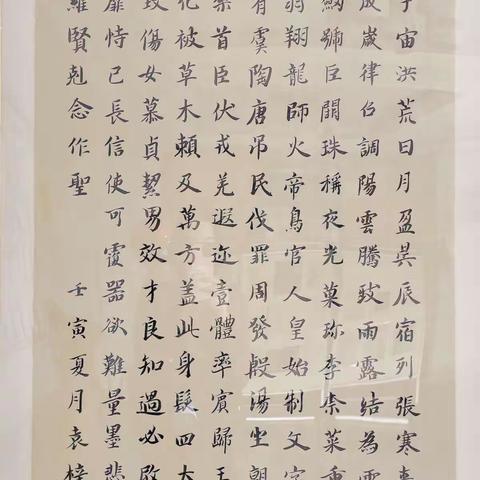 宇宙洪荒日月盈昃辰宿列張寒來
成歲律吕調陽雲騰致雨露結為霜
劍號巨闕珠稱夜光菓珍李柰菜重
羽翔龍師火帝鳥官人皇始制文字
有虞陶唐吊民伐罪周發殷湯坐朝
黎首臣伏戎羌遐迩壹體率賓歸王
化被草木賴及萬方盖此身髮四大
毀傷女慕貞絜男效才良知過必改
靡恃己長信使可覆器欲難量墨悲
維賢剋念作聖 壬寅夏月袁